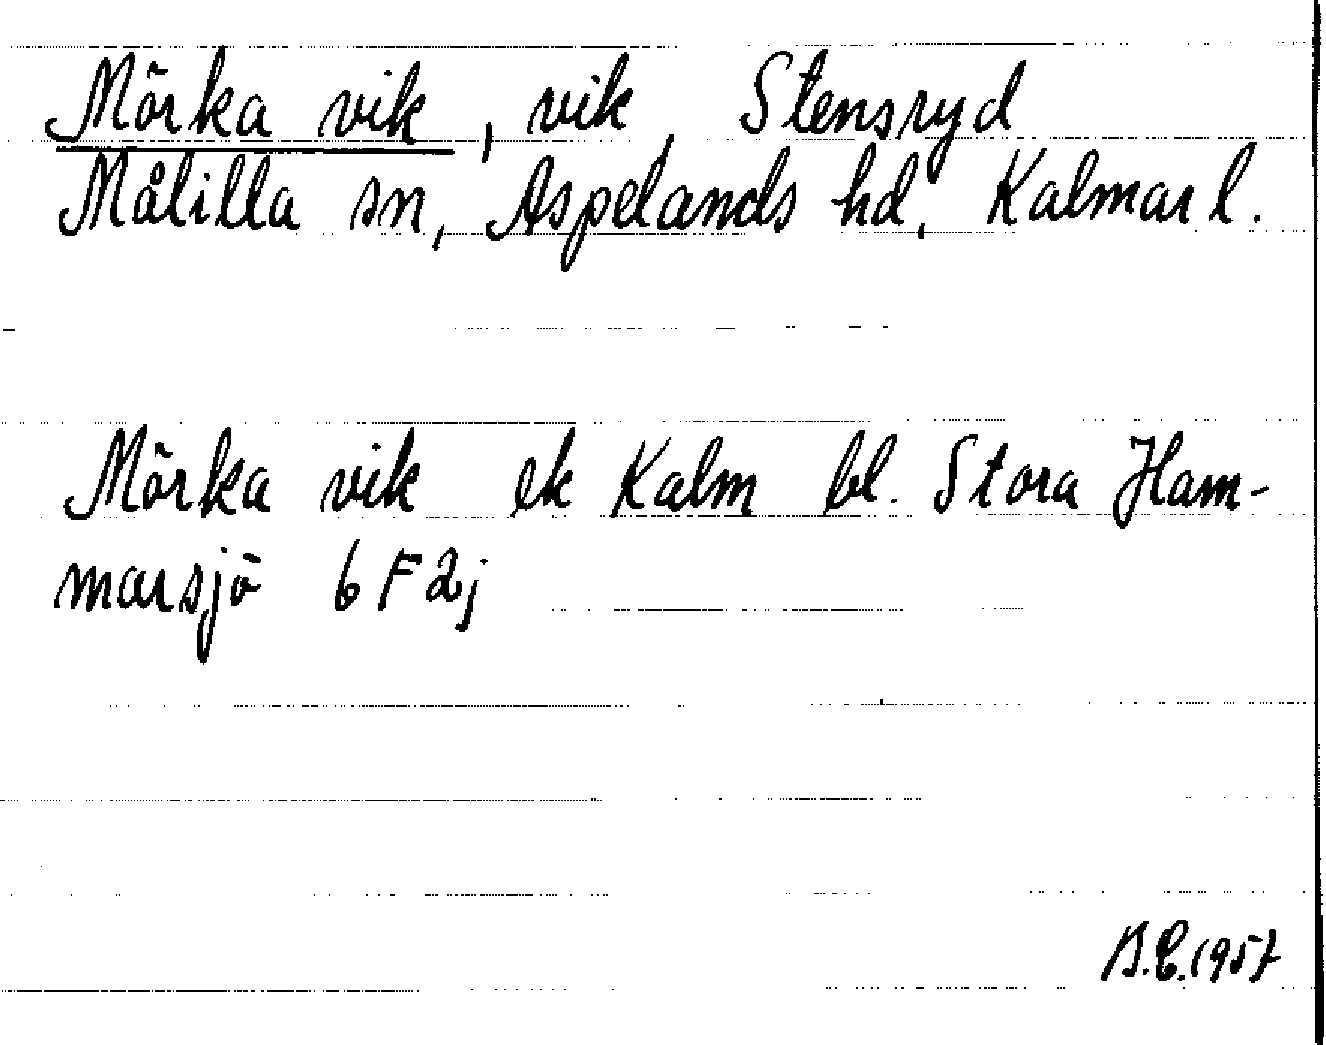 Mörka vik, vik, Stensryd
Målilla sn, Aspelands hd, Kalmar l.
Mörka vik ek Kalm bl. Stora Ham-
marsjö 6 F 2j
B.E. 1957